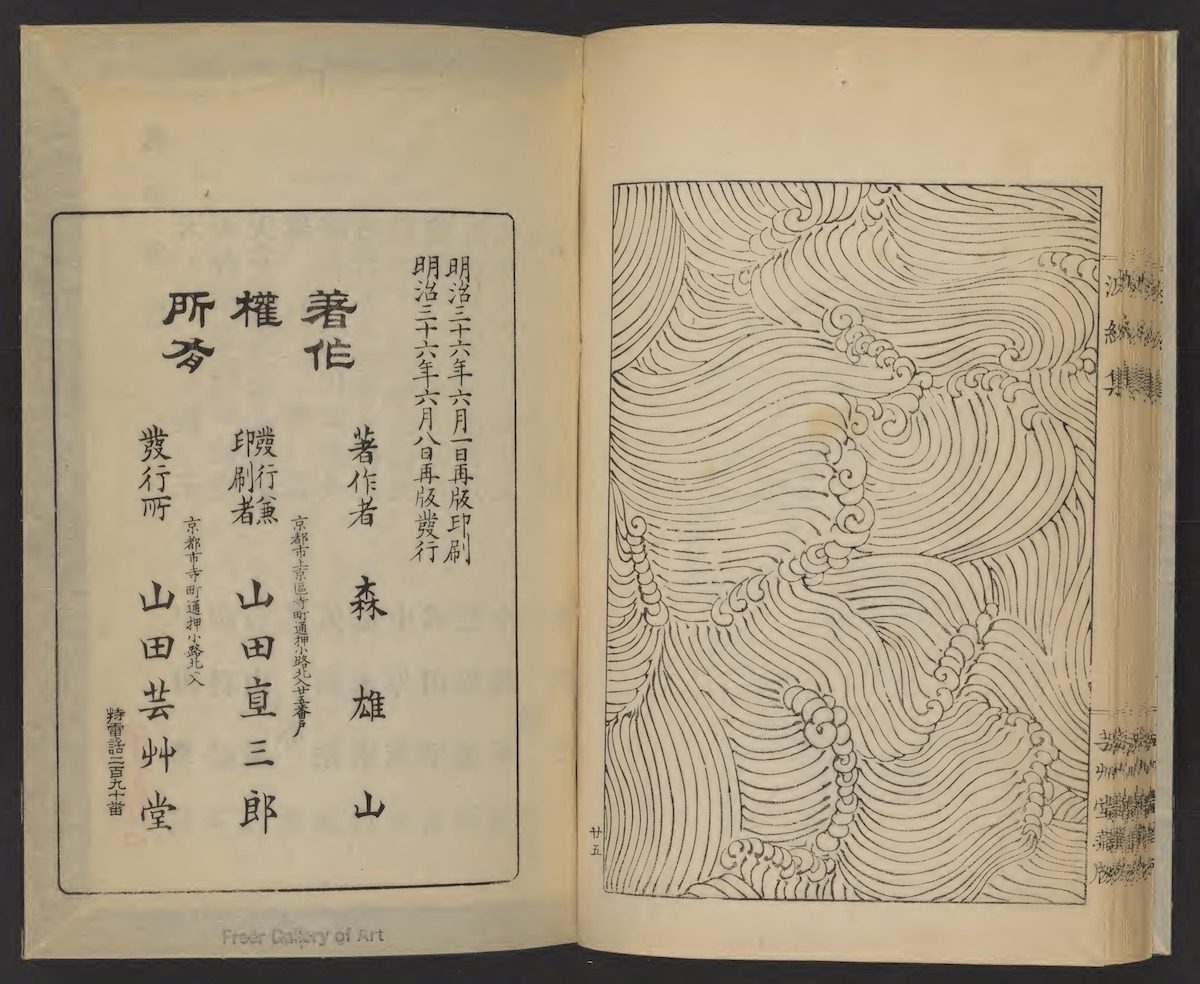 波紋集
廿五
明治三十六年六月一日再版印刷
明治三十六年六月八日再版發行
著作
權
所有
著作者 森雄山
京都市上京區寺町通押小路北入廿五番戸
發行兼
印刷者 山田直三郎
京都市寺町通押小路北入
發行所 山田芸艸堂
特電話二百九十番
Freer Gallery of Art